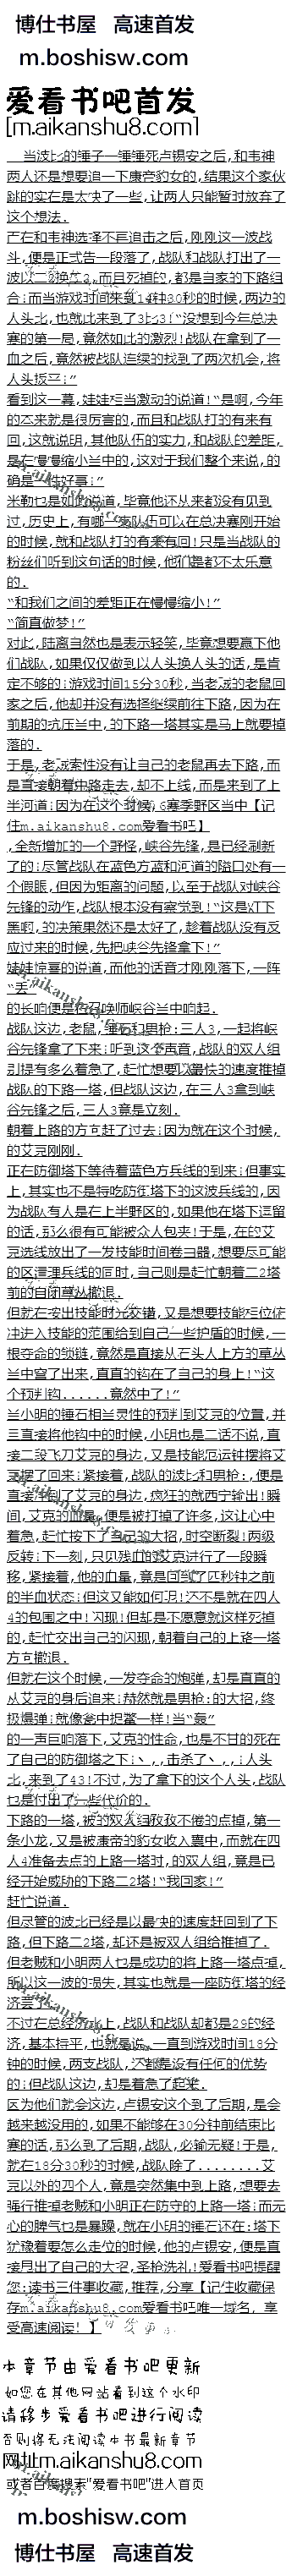 博仕书屋 高速首发
m.boshisw.com
爱看书吧首发
[m.aikanshu8.com]
当波比的锤子一锤锤死卢锡安之后,和韦神
两人还是想要追一下康帝豹女的,结果这个家伙
跳的实在是太快了一些,让两人只能暂时放弃了
这个想法.
而在和韦神选择不再追击之后,刚刚这一波战
斗,便是正式告一段落了,战队和战队打出了一
人头扳平!"
看到这一幕,娃娃相当激动的说道!"是啊,今年
的本来就是很厉害的,而且和战队打的有来有
回,这就说明,其他队伍的实力,和战队的差距,
是在慢慢缩小当中的,这对于我们整个来说,的
确是一件好事!"
过,历史上,有哪一支队伍可以在总决赛刚开始
的时候,就和战队打的有来有回!只是当战队的
粉丝们听到这句话的时候,他们是都不太乐意
的.
"和我们之间的差距正在慢慢缩小!"
"简直做梦!"
对此,陆离自然也是表示轻笑,毕竟想要赢下他
们战队,如果仅仅做到以人头换人头的话,是肯
定不够的!游戏时间15分30秒,当老贼的老鼠回
家之后,他却并没有选择继续前往下路,因为在
前期的抗压当中,的下路一塔其实是马上就要掉
落的.
于是,老贼索性没有让自己的老鼠再去下路,而
是直接朝着中路走去,却不上线,而是来到了上
半河道!因为在这个时候,S6赛季野区当中【记
住m.aikanshu8.com爱看书吧】
,全新增加的一个野怪,峡谷先锋,是已经刷新
了的!尽管战队在蓝色方蓝和河道的隘口处有一
个假眼,但因为距离的问题,以至于战队对峡谷
先锋的动作,战队根本没有察觉到!"这是灯下
黑啊,的决策果然还是太好了,趁着战队没有反
应过来的时候,先把峡谷先锋拿下!"
娃娃惊喜的说道,而他的话音才刚刚落下,一阵
"丢"
的长响便是在召唤师峡谷当中响起.
战队这边,老鼠,锤石和男枪:三人3,一起将峡
谷先锋拿了下来!听到这个声音,战队的双人组
别提有多么着急了,赶忙想要以最快的速度推掉
战队的下路一塔,但战队这边,在三人3拿到峡
谷先锋之后,三人3竟是立刻.
朝着上路的方向赶了过去!因为就在这个时候,
的艾克刚刚.
正在防御塔下等待着蓝色方兵线的到来!但事实
上,其实也不是特吃防御塔下的这波兵线的,因
为战队有人是在上半野区的,如果他在塔下逗留
的话,那么很有可能被众人包夹!于是,在的艾
克选线放出了一发技能时间卷曲器,想要尽可能
的区清理兵线的同时,自己则是赶忙朝着二2塔
前的自闭草丛撤退.
但就在按出技能时光交错,又是想要技能相位俯
冲进入技能的范围给到自己一些护盾的时候,一
根夺命的锁链,竟然是直接从石头人上方的草丛
当中窜了出来,直直的钩在了自己的身上!"这
个预判钩......竟然中了!"
当小明的锤石相当灵性的预判到艾克的位置,并
三直接将他钩中的时候,小明也是二话不说,直
接二段飞刀艾克的身边,又是技能厄运钟摆将艾
克摆了回来!紧接着,战队的波比和男枪:,便是
直接来到了艾克的身边,疯狂的就西宁输出!瞬
间,艾克的血量,便是被打掉了许多,这让心中
着急,赶忙按下了自己的大招,时空断裂!两级
反转!下一刻,只见残血的艾克进行了一段瞬
移,紧接着,他的血量,竟是回复了匹秒钟之前
的半血状态!但这又能如何呢!还不是就在四人
4的包围之中!闪现!但却是不愿意就这样死掉
的,赶忙交出自己的闪现,朝着自己的上路一塔
方向撤退.
但就在这个时候,一发夺命的炮弹,却是直直的
从艾克的身后追来!赫然就是男枪:的大招,终
极爆弹!就像瓮中捉鳖一样!当"轰"
的一声巨响落下,艾克的性命,也是不甘的死在
北,来到了43!不过,为了拿下的这个人头,战队
也是付出了一些代价的.
下路的一塔,被的双人组孜孜不倦的点掉,第一
条小龙,又是被康帝的豹女收入囊中,而就在四
人4准备去点的上路一塔时,的双人组,竟是已
经开始威胁的下路二2塔!"我回家!"
赶忙说道.
但尽管的波比已经是以最快的速度赶回到了下
路,但下路二2塔,却还是被双人组给推掉了.
但老贼和小明两人也是成功的将上路一塔点掉,
所以这一波的损失,其实也就是一座防御塔的经
济罢了.
不过在总经济线上,战队和战队却都是29的经
济,基本持平,也就是说,一直到游戏时间18分
钟的时候,两支战队,还都是没有任何的优势
的!但战队这边,却是着急了起来.
因为他们就会这边,卢锡安这个到了后期,是会
越来越没用的,如果不能够在30分钟前结束比
赛的话,那么到了后期,战队,必输无疑!于是,
就在18分30秒的时候,战队除了........艾
克以外的四个人,竟是突然集中到上路,想要去
强行推掉老贼和小明正在防守的上路一塔!而无
心的脾气也是暴躁,就在小明的锤石还在:塔下
犹豫着要怎么走位的时候,他的卢锡安,便是直
接甩出了自己的大招,圣枪洗礼!爱看书吧提醒
您:读书三件事收藏,推荐,分享【记住收藏保
存m.aikanshu8.com爱看书吧唯一域名, 享
受高速阅读!】
本章节由爱看书吧更新
如您在其他网站看到这个水印
请移步爱看书吧进行阅读
否则将无法阅读本书最新章节
网址m.aikanshu8.com
或者百度搜索"爱看书吧"进入首页
m.boshisw.com
博仕书屋 高速首发